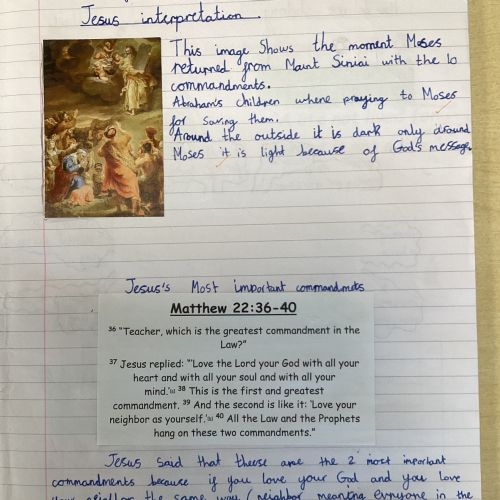 Jesus interpretation.
This image Shows the moment Moses
returned from Maunt Siniai with the 10
commandments.
Abraham's children where praying to Moses
for saving them.
Around the outside it is dark only around
Moses it is light because of God's message
Jesus's Most important commandmets
Matthew 22:36-40
36 "Teacher, which is the greatest commandment in the
Law?"
37 Jesus replied: "'Love the Lord your God with all your
heart and with all your soul and with all your
mind.' 38 This is the first and greatest
commandment. 39 And the second is like it: 'Love your
neighbor as yourself.' 40 All the Law and the Prophets
hang on these two commandments."
Jesus said that theese are the 2 most important
commandments because if you love your God and you love
the same way (neighbor meaning everyone in the